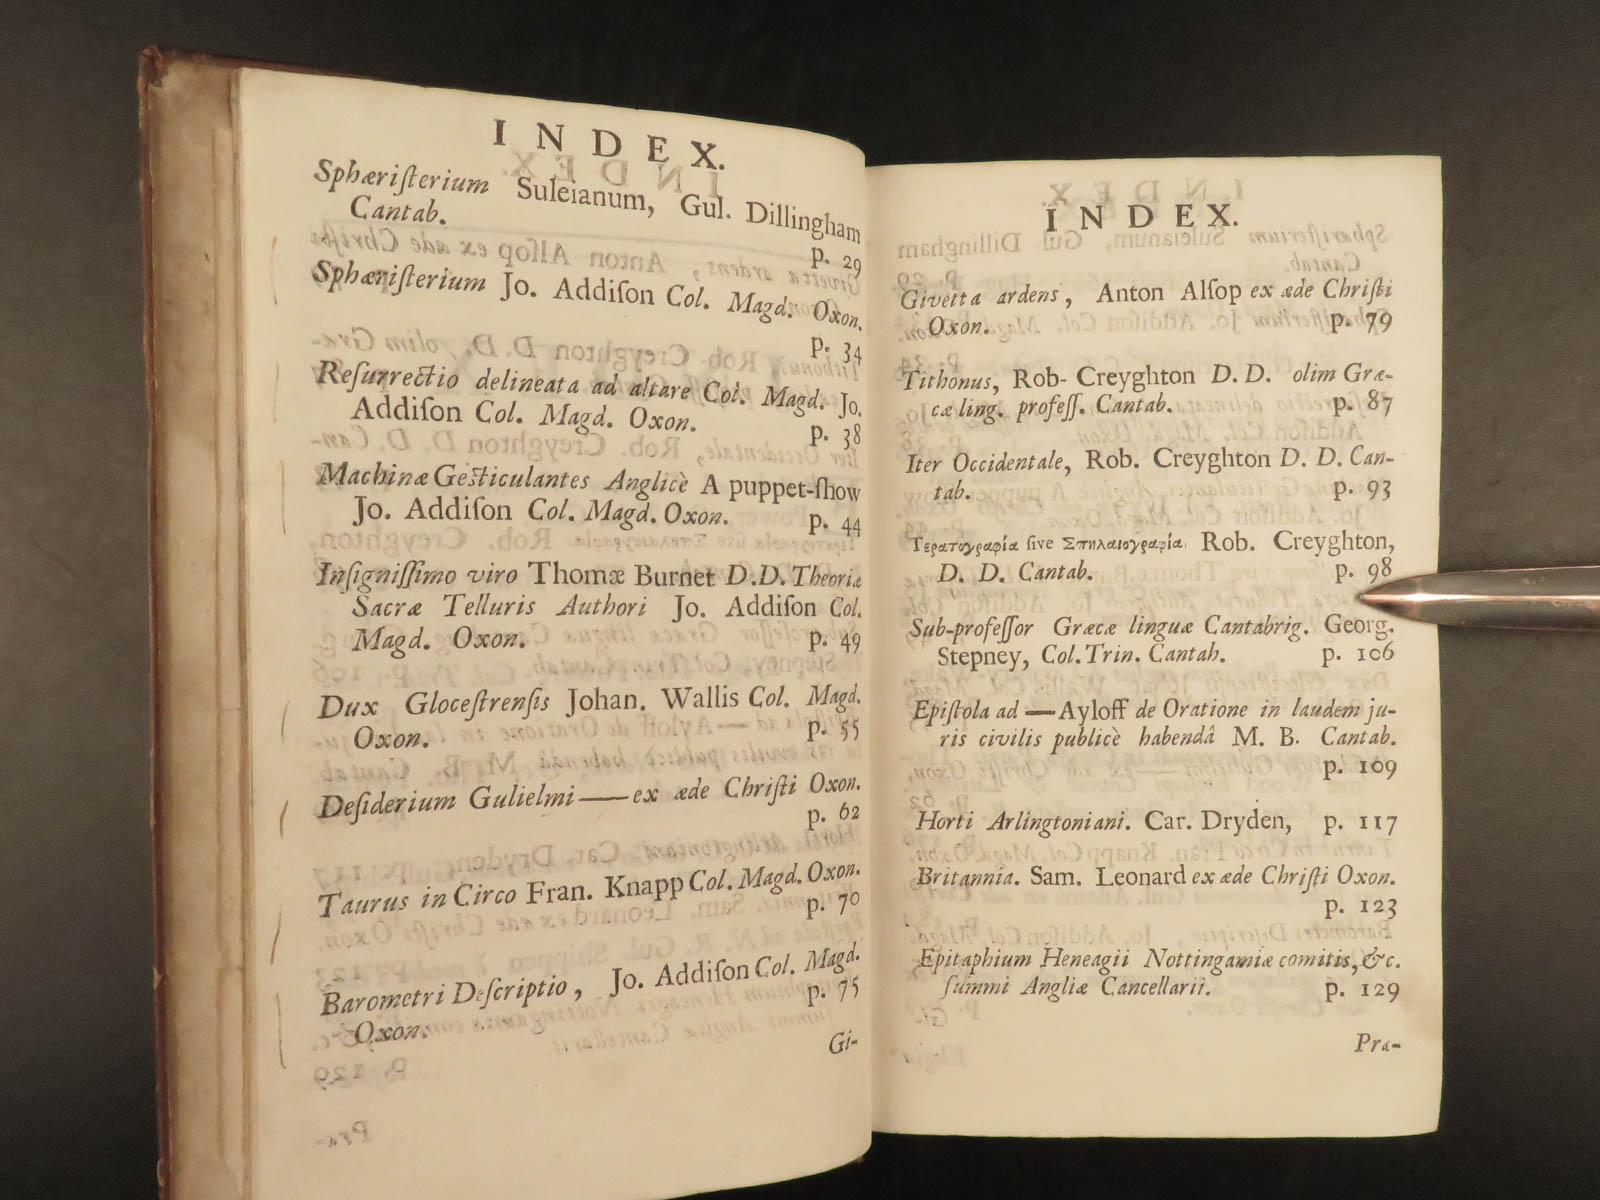 INDEX.
Sphæriſterium Suleianum, Gul. Dillingham
Cantab.
p. 29
Sphæriſterium Jo. Addiſon Col. Magd. Oxon.
p. 34
Reſurrectio delineata ad altare Col. Magd. Jo.
Addiſon Col. Magd. Oxon. p. 38
Machinæ Geſticulantes Anglicè A puppet-ſhow
Jo. Addiſon Col. Magd. Oxon. p. 44
Inſigniſſimo viro Thomæ Burnet D.D. Theoriæ
Sacræ Telluris Authori Jo. Addiſon Col.
Magd. Oxon. p. 49
Dux Gloceſtrenſis Johan. Wallis Col. Magd.
Oxon. p. 55
Deſiderium Gulielmi—ex æde Chriſti Oxon.
p. 62
Taurus in Circo Fran. Knapp Col. Magd. Oxon.
p. 70
Barometri Deſcriptio, Jo. Addiſon Col. Magd.
Oxon. p. 75
Gi-
INDEX.
Givetta ardens, Anton Alſop ex æde Chriſti
Oxon. p. 79
Tithonus, Rob- Creyghton D. D. olim Græ-
cæ ling. profeſſ. Cantab. p. 87
Iter Occidentale, Rob. Creyghton D. D. Can-
tab. p. 93
Τερατογραφία ſive Σπηλαιογραφία, Rob. Creyghton,
D. D. Cantab. p. 98
Sub-profeſſor Græcæ linguæ Cantabrig. Georg.
Stepney, Col. Trin. Cantab. p. 106
Epiſtola ad — Ayloff de Oratione in laudem ju-
ris civilis publicè habendâ M. B. Cantab.
p. 109
Horti Arlingtoniani. Car. Dryden, p. 117
Britannia. Sam. Leonard ex æde Chriſti Oxon.
p. 123
Epitaphium Heneagii Nottingamiæ comitis, &c.
ſummi Angliæ Cancellarii. p. 129
Præ-